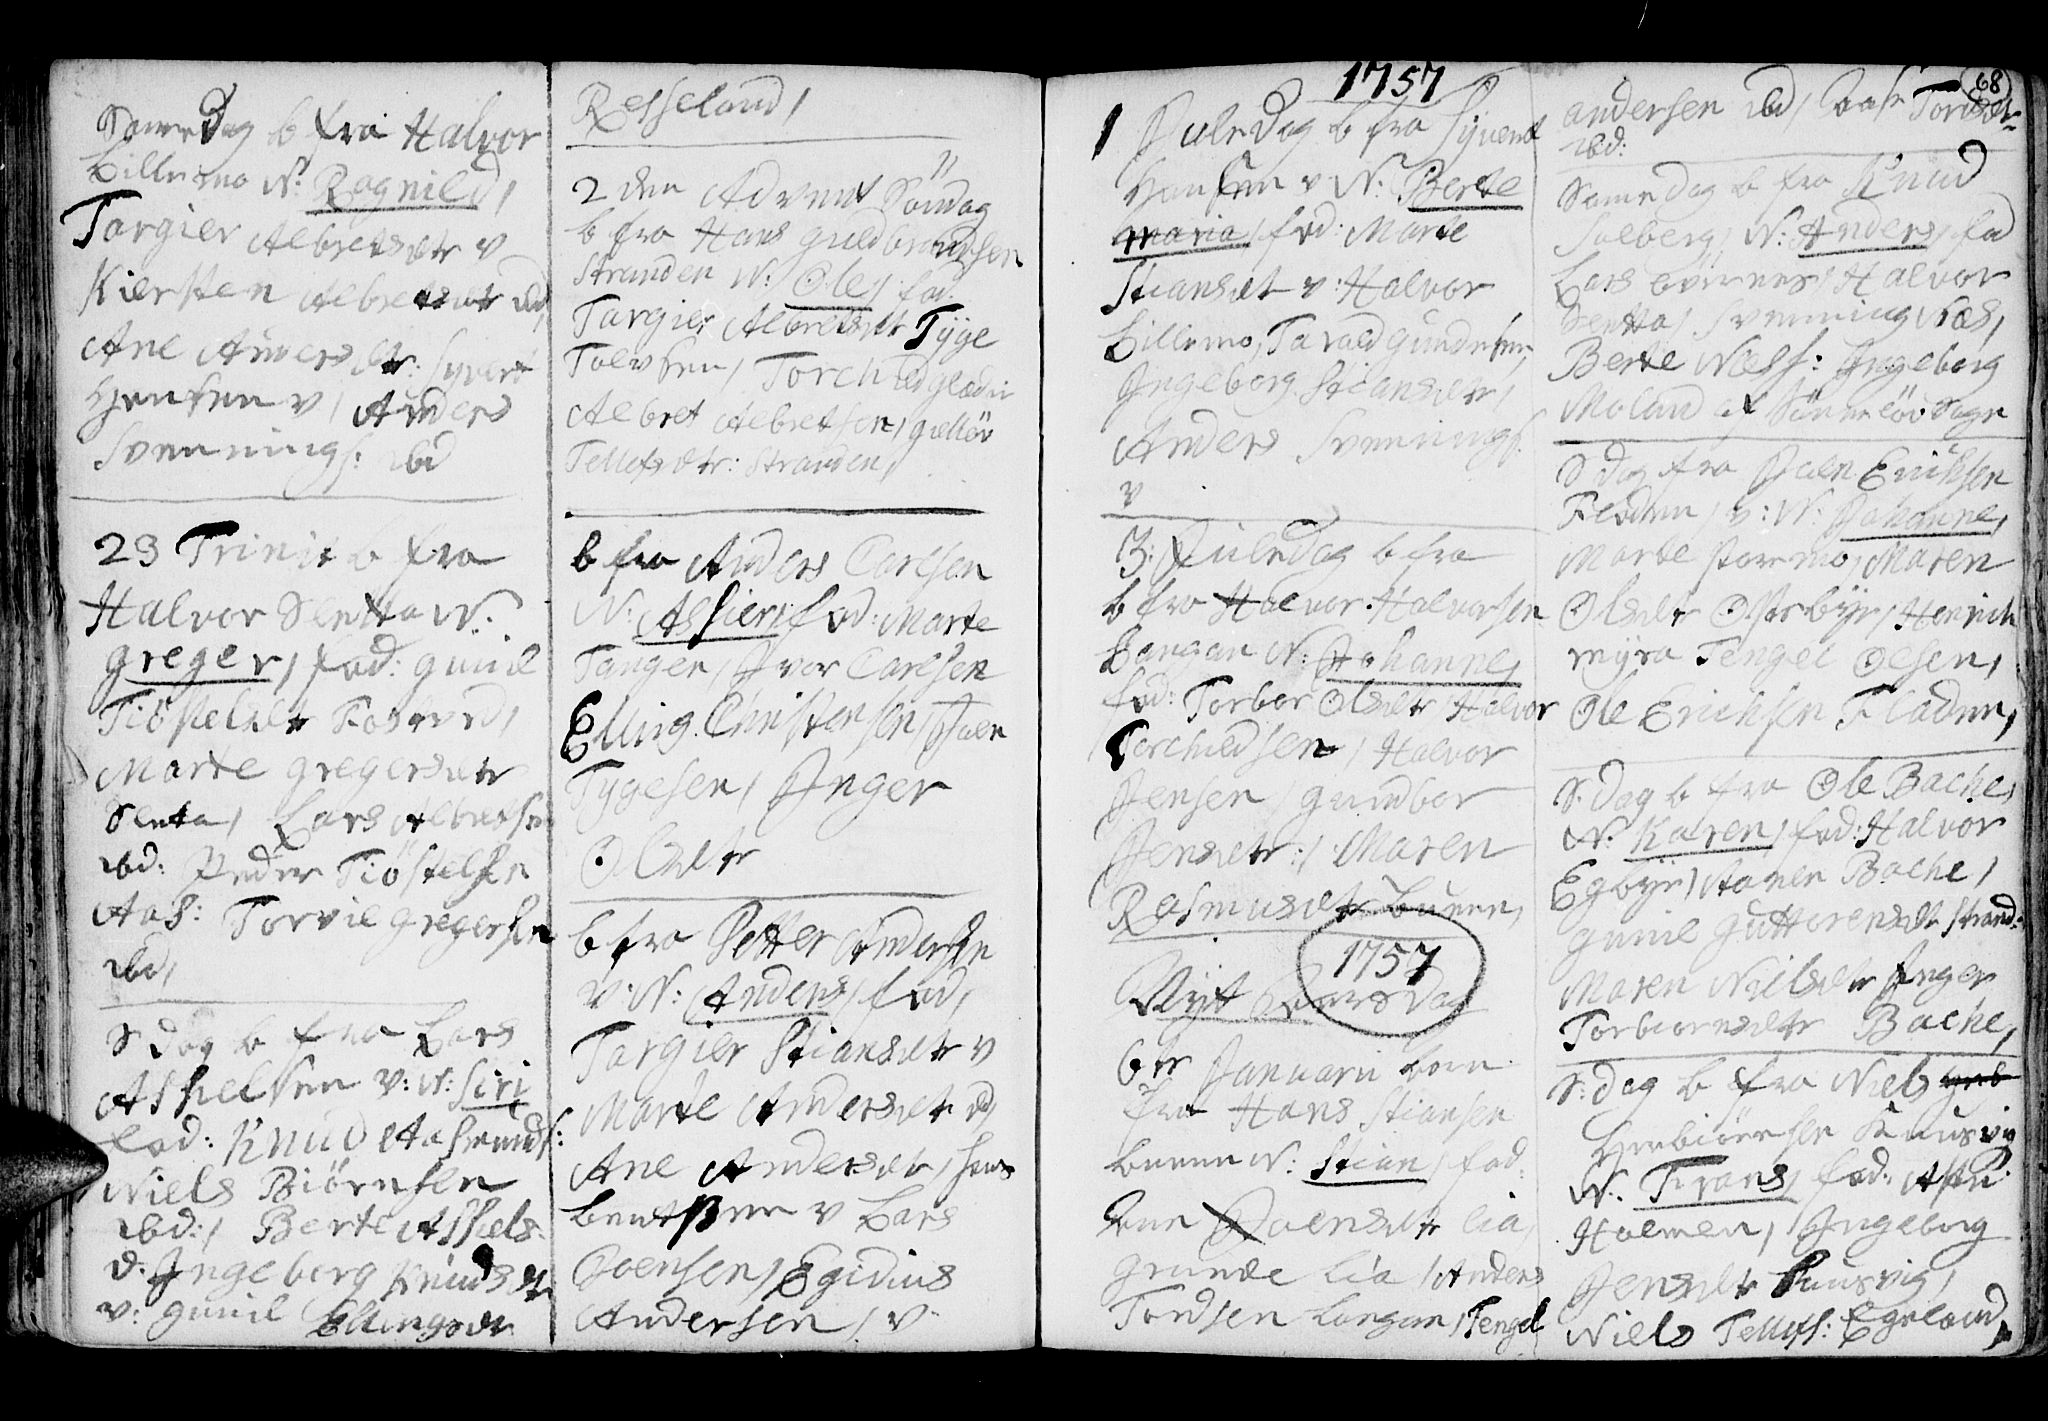 Same Dag b fra Halvor
Lillemo N: Ragnild /
Targier Albretsdtr v
Kiersten Albretsdtr ibd,
Ane Andersdtr: Syvert
Hansen v / Anders
Svennings: ibd
23 Trinit b fra
Halvor Sletta N:
greger / fad: gunil
Tiøstelsdtr
Marte gregersdtr
Sletta / Lars Albretsen
ibd: Peder Tiøstelsen
Aas: Torvil gregersen
ibd,
S dag b fra Lars
Assielsen v: N: Siri
fad: Knud Aasmunds:
Niels Biørnsen
ibd: / Berte Assiels
d: Ingeborg Knudsdtr
v: gunil Ellingsdtr
Resseland /
2 den Advent Søndag
b fra Hans guldbrandsen
Stranden N: Ole / fad:
Targier Albretsdtr Tyge
Tolvsen / Torchild gladin
Albret Albretsen / gielløv
Tellefsdtr: Stranden /
b fra Anders Carlsen
N: Assiern fad: Marte
Tangen / Iver Carlsen
Elling Christensen / Joen
Tygesen / Inger
Olsdtr
b fra Petter Andersen
v: N: Anders / fad /
Targier Stiansdtr v
Marte Andersdtr ibd /
Ane Andersdtr / Hans
bentsen v Lars
Joensen / Egidius
Andersen / v
1757
1 Juledag b fra Syvert
Hansen v N: Berte
Maria / fad: Marte
Stiansdtr v: Halvor
Lillemo, Tarald gundersen
Ingeborg Stiansdtr /
Anders Svennings:
v
3: Juledag b fra
b fra Halvor Halvorsen
Langan N: Johanne /
fad: Torbor Olsdtr Halvor
Torchildsen / Halvor
Jensen / gundbor
Jensdtr: / Maren
Rasmusdtr buene,
1757
Nyt Aarsdag
6te Januarii
fra Hans Stiansen
buene N: Stian / fad:
Joensdtr lia,
grunde lia / Anders
Tordsen Langan / Tengel
68
andersen ibd / Aase Tordsdtr
ibd:
Same dag b fra Knud
Solberg / N: Anders / fad
Lars / Halvor
Sletta / Svenning Næs,
Berte Næss: Ingeborg
Moland af Sønneløv Sogn
S dag fra Joen Erichsen
Fladen / v: N: Johanne,
Marte Storemo / Maren
Olsdtr Osterbye / Henrich
myra Tengel Olsen,
Ole Erichsen Fladen,
S: dag b fra Ole Bache,
N: Karen / fad: Halvor
Egbye / Bache /
gunil guttorensdtr Strand:
Maren Nielsdtr Inger
Torbiørnsdtr Bache,
S: dag b fra Niels
Herbiørnsen Knusvig
N: Frans / fad: Asti
Holmen / Ingeborg
Jensdtr Knusvig,
Niels Tellefs: Egeland,